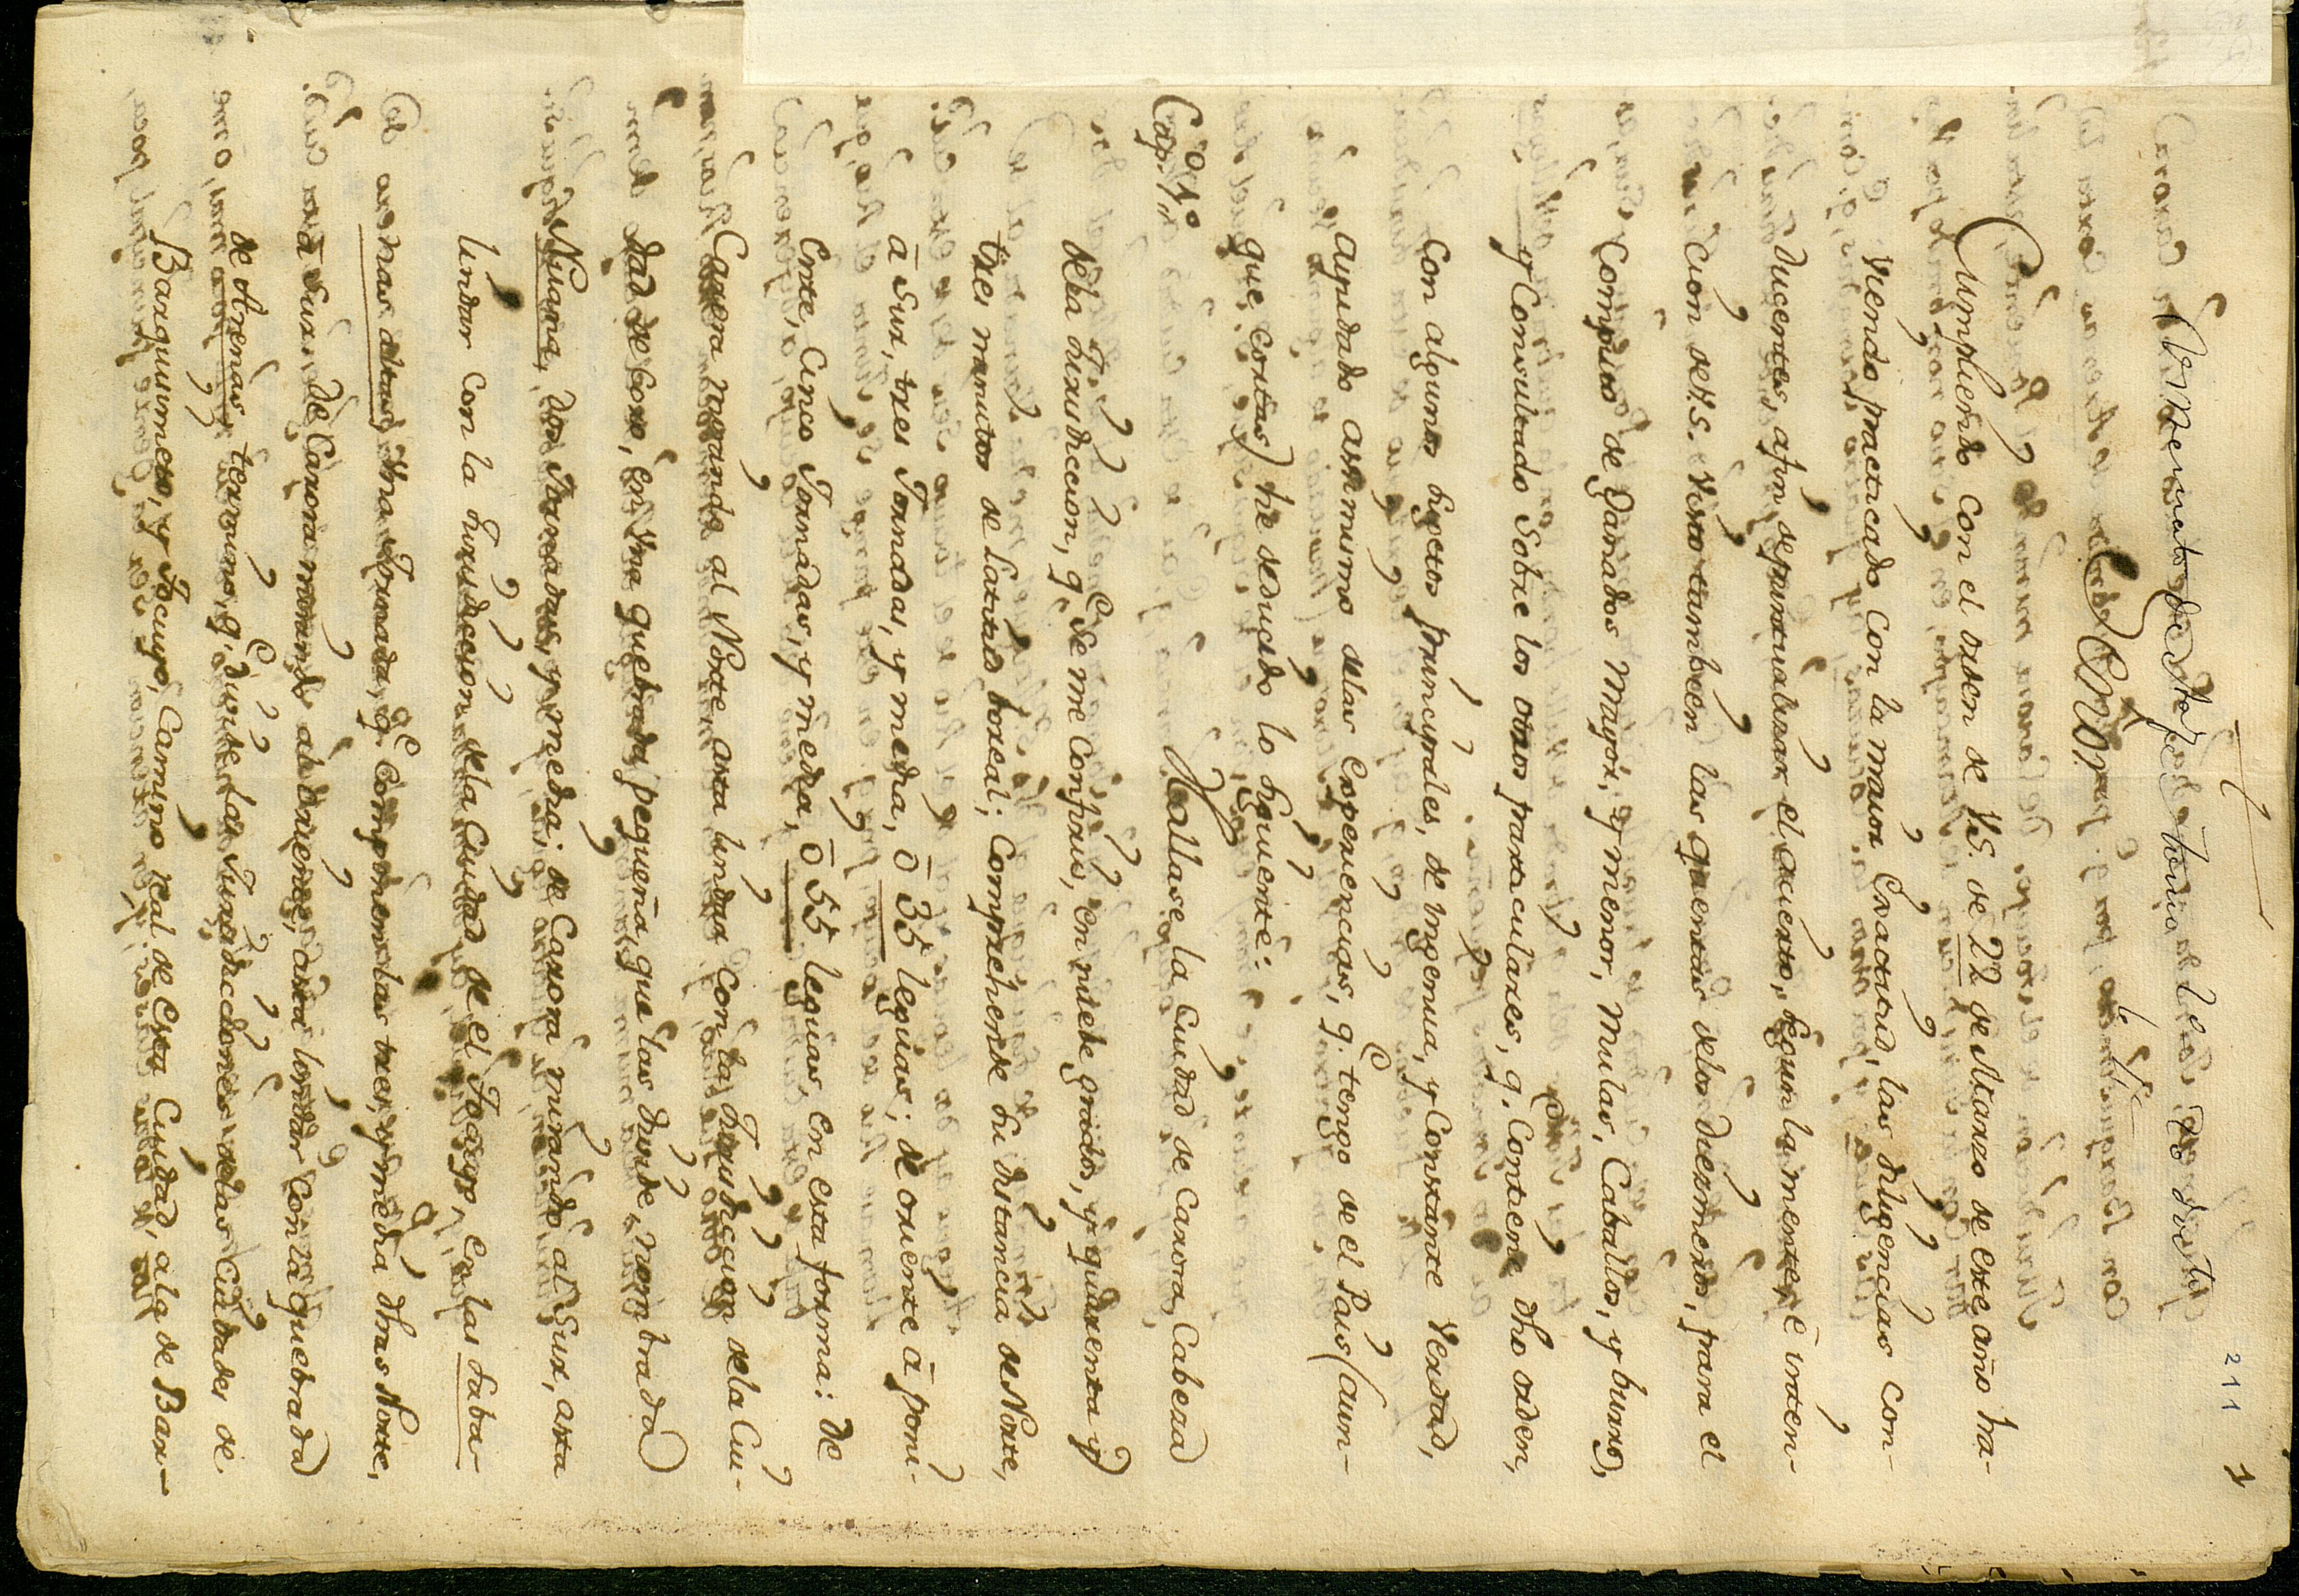 211
1
Cumpliendo con el orden de V.S. de 22 de Marzo de este año ha-
viendo practicado con la maior Exactitud, las diligencias con-
ducentes, afin de puntualizar el acierto, segun la mente, è inten-
cion de V.S. Visto tambien las quentas delos diezmeros, para el
Computo de Ganados mayor, y menor, mulas, Caballos, y burros,
y Consultado Sobre los otros particulares, q.e Contiene dho orden,
Con algunos sugetos principales, de ingenua, y Constante Verdad,
ayudado assi mismo delas Experiencias, q.e tengo de el Pais (aun-
que cortas) he deducido lo siguiente:
Cap.o 1.o
Hallase la Ciudad de Carora, Cabeza
de la Jurisdiccion, q.e se me Confirió, en nuebe grados, y quarenta y
tres minutos de Latitud boreal; Comprehende su distancia de Norte,
à Sur, tres Jornadas, y media, ò 35 leguas; de oriente à poni-
ente, Cinco Jornadas, y media, ò 55 leguas, en esta forma: de
Carora mirando al Norte asta lindar con la Jurisdiccion dela Ciu-
dad de Coro, en Vna quebrada pequeña, que las divide, nombrada
dos Jornadas, y media; de Carora mirando al Sur, asta
lindar con la Jurisdiccion dela Ciudad de el Tocuyo, en las Saba-
Vna Jornada, q.e Componen las tres, y media dhas Norte,
à Sur: De Carora mirando al oriente, asta lindar con la quebrada
de Arenas termino, q.e divide las Jurisdicciones delas Ciudades de
Barquisimeto, y Tocuyo, Camino real de Esta Ciudad, ala de Bar-